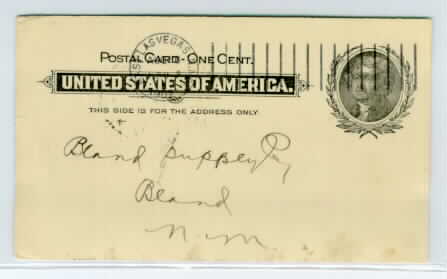 LAS VEGAS
POSTAL CARD - ONE CENT.
UNITED STATES OF AMERICA.
THIS SIDE IS FOR THE ADDRESS ONLY.
Bland Supply Co
Bland
N. M.